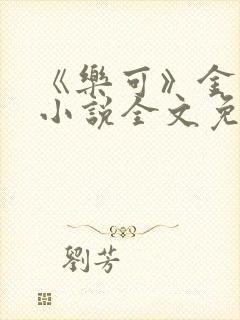 《樂可》金
小說全文免
劉芳